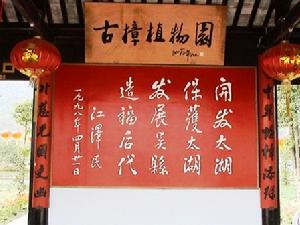 古樟植物園
開发太湖
保護太湖
发展吴縣
造福后代
江澤民
一九九八年四月廿一日